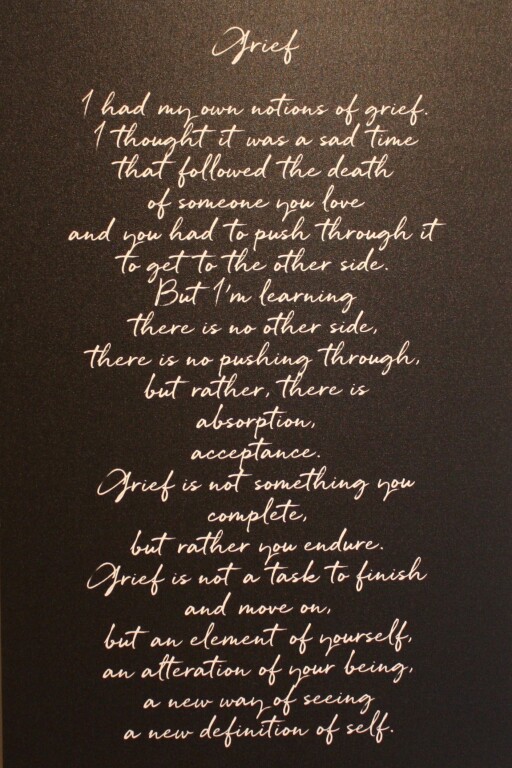 Grief
I had my own notions of grief.
I thought it was a sad time
that followed the death
of someone you love
and you had to push through it
to get to the other side.
But I'm learning
there is no other side,
there is no pushing through,
but rather, there is
absorption,
acceptance.
Grief is not something you
complete,
but rather you endure.
Grief is not a task to finish
and move on,
but an element of yourself,
an alteration of your being,
a new way of seeing
a new definition of self.